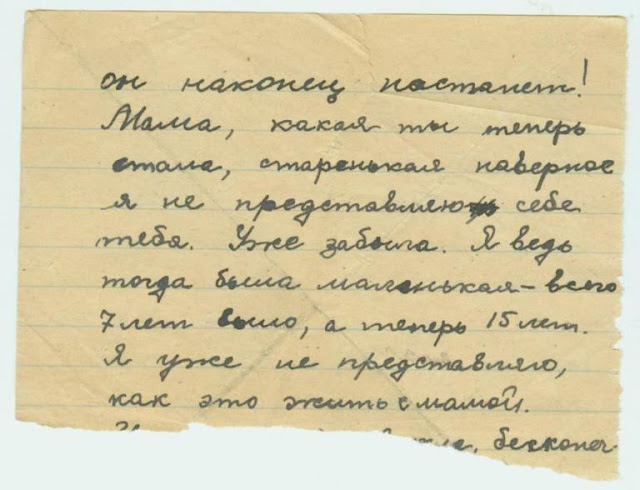 он наконец настанет!
Мама, какая ты теперь
стала, старенькая наверное
я не представляю себе
тебя. Уже забыла. Я ведь
тогда была маленькая - всего
7 лет было, а теперь 15 лет.
Я уже не представляю,
как это жить с мамой.
бесконеч